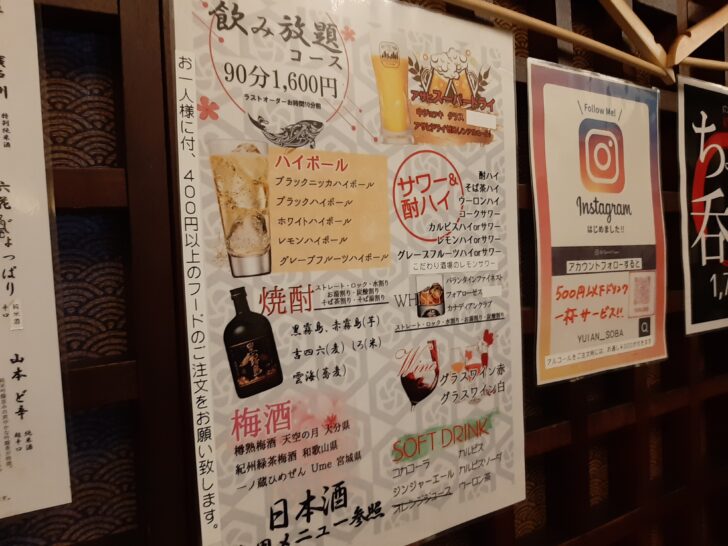 特別純米酒
六花
じょっぱり
純米酒
辛口
山本 ど辛
純米酒
超辛口
飲み放題
コース
90分1,600円
ラストオーダーお時間10分前
お一人様に付、400円以上のフードのご注文をお願い致します。
Asahi
アサヒスーパードライ
中ジョッキ グラス
アサヒドライゼロ(ノンアルコール)
ハイボール
ブラックニッカハイボール
ブラックハイボール
ホワイトハイボール
レモンハイボール
グレープフルーツハイボール
サワー&
酎ハイ
酎ハイ
そば茶ハイ
ウーロンハイ
コークサワー
カルピスハイorサワー
レモンハイorサワー
グレープフルーツハイorサワー
こだわり酒場のレモンサワー
焼酎
ストレート・ロック・水割り
お湯割り・炭酸割り
そば茶割り・そば湯割り
黒霧島、赤霧島(芋)
吉四六(麦) しろ(米)
雲海(蕎麦)
WH
バランタインファイネスト
フォアローゼズ
カナディアンクラブ
ストレート・ロック・水割り・お湯割り
Wine
グラスワイン赤
グラスワイン白
梅酒
樽熟梅酒 天空の月 大分県
紀州緑茶梅酒 和歌山県
一ノ蔵ひめぜん Ume 宮城県
SOFT DRINK
コカコーラ カルピス
ジンジャーエール カルピスソーダ
オレンジジュース ウーロン茶
日本酒
メニュー参照
Follow Me!
Instagram
はじめました!!
アカウントフォローすると
500円以下ドリンク
一杯サービス!!
YUIAN_SOBA
ち
呑
1,7